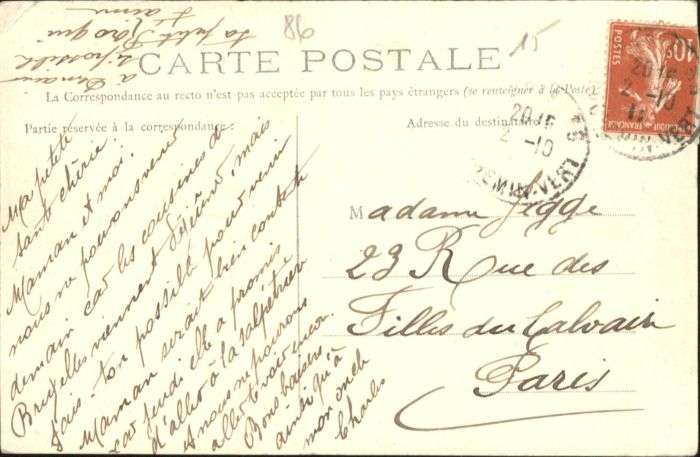 à demain
si possible
ta petite Jojo qui
t'aime
86
15
CARTE POSTALE
La Correspondance au recto n'est pas acceptée par tous les pays étrangers (se renseigner à la Poste).
Partie réservée à la correspondance :
Adresse du destinataire
10c
POSTES
2 -10
Ma petite
tante chérie.
Maman et moi
nous ne pouvons venir
demain car les cousines de
Bruxelles viennent déjeûner, mais
fais ton possible pour venir
Maman serait bien contente
car jeudi elle a promis
d'aller à la salpétrière
& nous ne pourrons
aller te voir encor.
Bons baisers
ainsi qu'à
mon oncle
Charles
Madame Jegge
23 Rue des
Filles du Calvaire
Paris